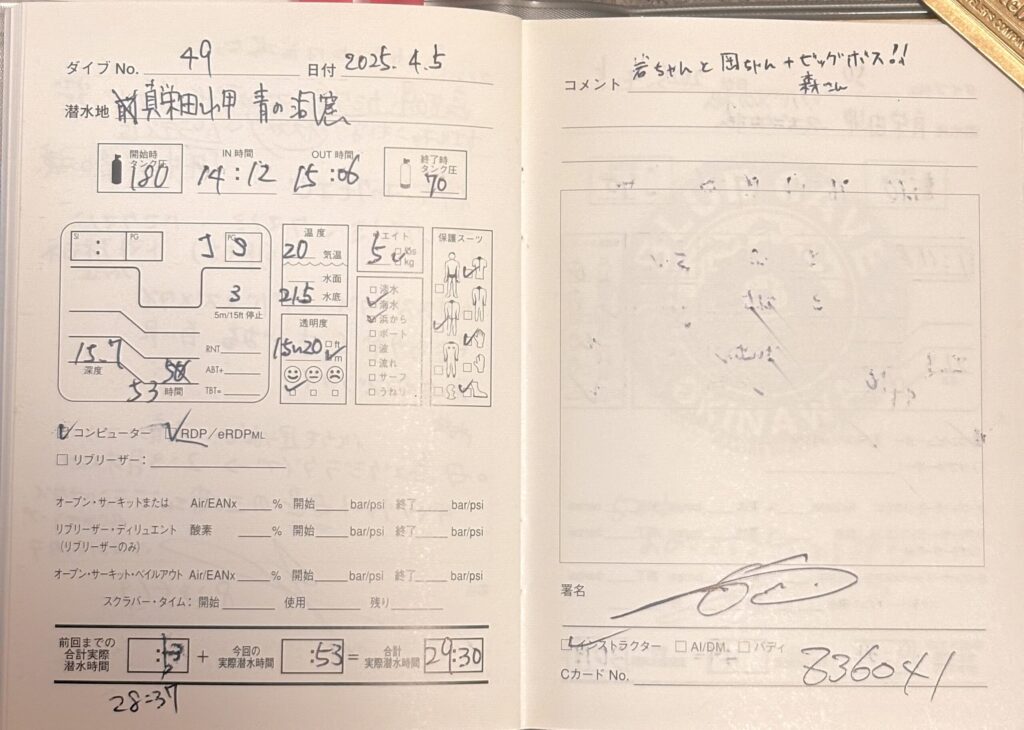 ダイブ No. 49 日付 2025. 4. 5
潜水地 真栄田岬 青の洞窟
開始時タンク圧 180 IN 時間 14:12 OUT 時間 15:06 終了時タンク圧 70
SI : PG J PG S
3
5m/15ft 停止
15.7
深度
53 時間
RNT
ABT+
TBT=
温度
20 気温
水面
21.5 水底
透明度
15~20 ft
m
ウエイト
5 lbs
kg
淡水
海水
浜から
ボート
波
流れ
サーフ
うねり
保護スーツ
コンピューター RDP/eRDPML
リブリーザー:
オープン・サーキットまたは Air/EANx % 開始 bar/psi 終了 bar/psi
リブリーザー・ディリュエント 酸素 % 開始 bar/psi 終了 bar/psi
(リブリーザーのみ)
オープン・サーキット・ベイルアウト Air/EANx % 開始 bar/psi 終了 bar/psi
スクラバー・タイム: 開始 使用 残り
前回までの合計実際潜水時間 + 今回の実際潜水時間 :53 = 合計実際潜水時間 29:30
28:37
コメント 岩ちゃんと岡ちゃん+ビッグボス!!
森さん
署名
インストラクター AI/DM バディ
Cカード No. 836041